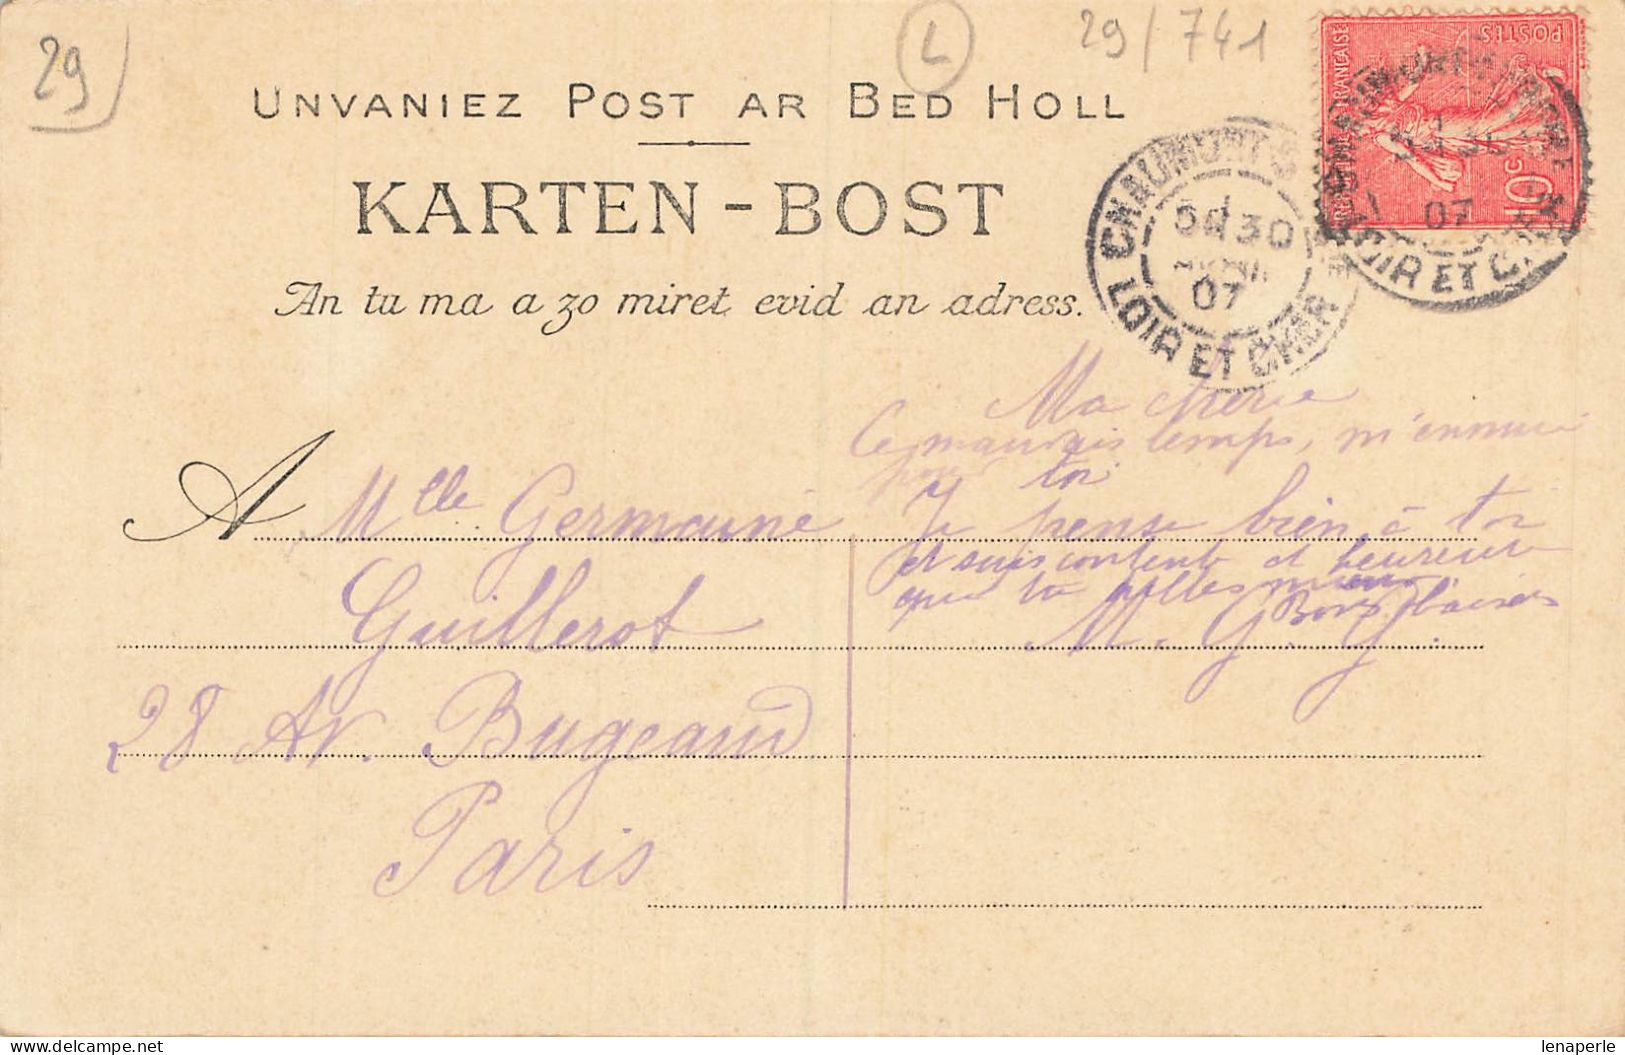 29
L
29/741
UNVANIEZ POST AR BED HOLL
KARTEN-BOST
An tu ma a zo miret evid an adress.
POSTES
10c
CHAUMONT S
5H30
07
LOIR ET CHER
07
LOIR ET CHER
Ma cherie
Ce mauvais temps, m'ennuie
pour toi
Je pense bien à toi
et suis contente et heureuse
que tu ailles mieux.
Bons baisers
M. G. G.
A Mlle Germaine
Guillerot
28 Av. Bugeaud
Paris
lenaperle